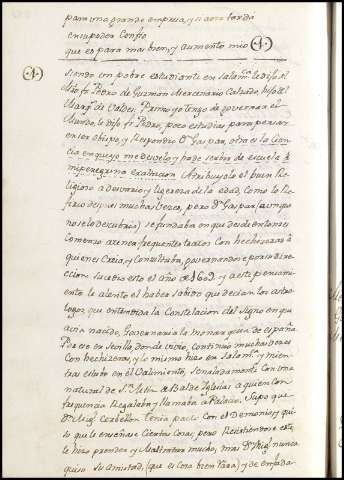 para una grande empresa, y si aora tarda
en su poder Confio
que es para mas bien, y aumento mio (A.)
(A.) siendo un pobre estudiante en Salam.ca le dijo al
fr. Pedro de Guzmán Mercenario Calzado, hijo del
Marq.s de Valdes, Primo yo tengo de governar el
Mundo, le dijo fr. Pedro, poco estudias para pensar
en ser obispo, y Respondio Dn. Gaspar, otra es la Cien
cia en que yo me desvelo y hade ser
mi peregrina exaltacion Atribuyolo el buen Re
ligioso a desvario y ligereza de la edad, Como lo Re
firio despues muchas veces, pero Dn. Gaspar (aunque
no se lo descubrio) se fundaba en que desde entonces
Comenzo a tener frequentes tratos Con hechizeras à
quienes Creia, y Consultaba, governandose por su di
reccion sucedio esto el año de 1602. y a este pensam
iento le alento el haber sabido que decian los astro
logos que entendida la Constelacion del Signo en que
avia nacido, Governaria la monarquia de españa
Passe en Sevilla, donde vivio, Continuo muchas veces
Con hechizeras, y lo mismo hizo en Salam.ca y mien
tras estubo en el Valimiento, Señaladamente Con una
natural de Sn. Martin de Baldeyglesias a quien Con
frequencia Regalaba y llamaba a Palacio. Supo que
Dn. Mig.l Cerbellon tenia pacto Con el Demonio, y qui
so que le enseñase Ciertas Cosas, pero Resistiendose este
le hizo prender y Maltratar mucho, mas Dn. Mig.l nunca
quiso su amistad, (que es Cosa bien Rara) y de enfada-